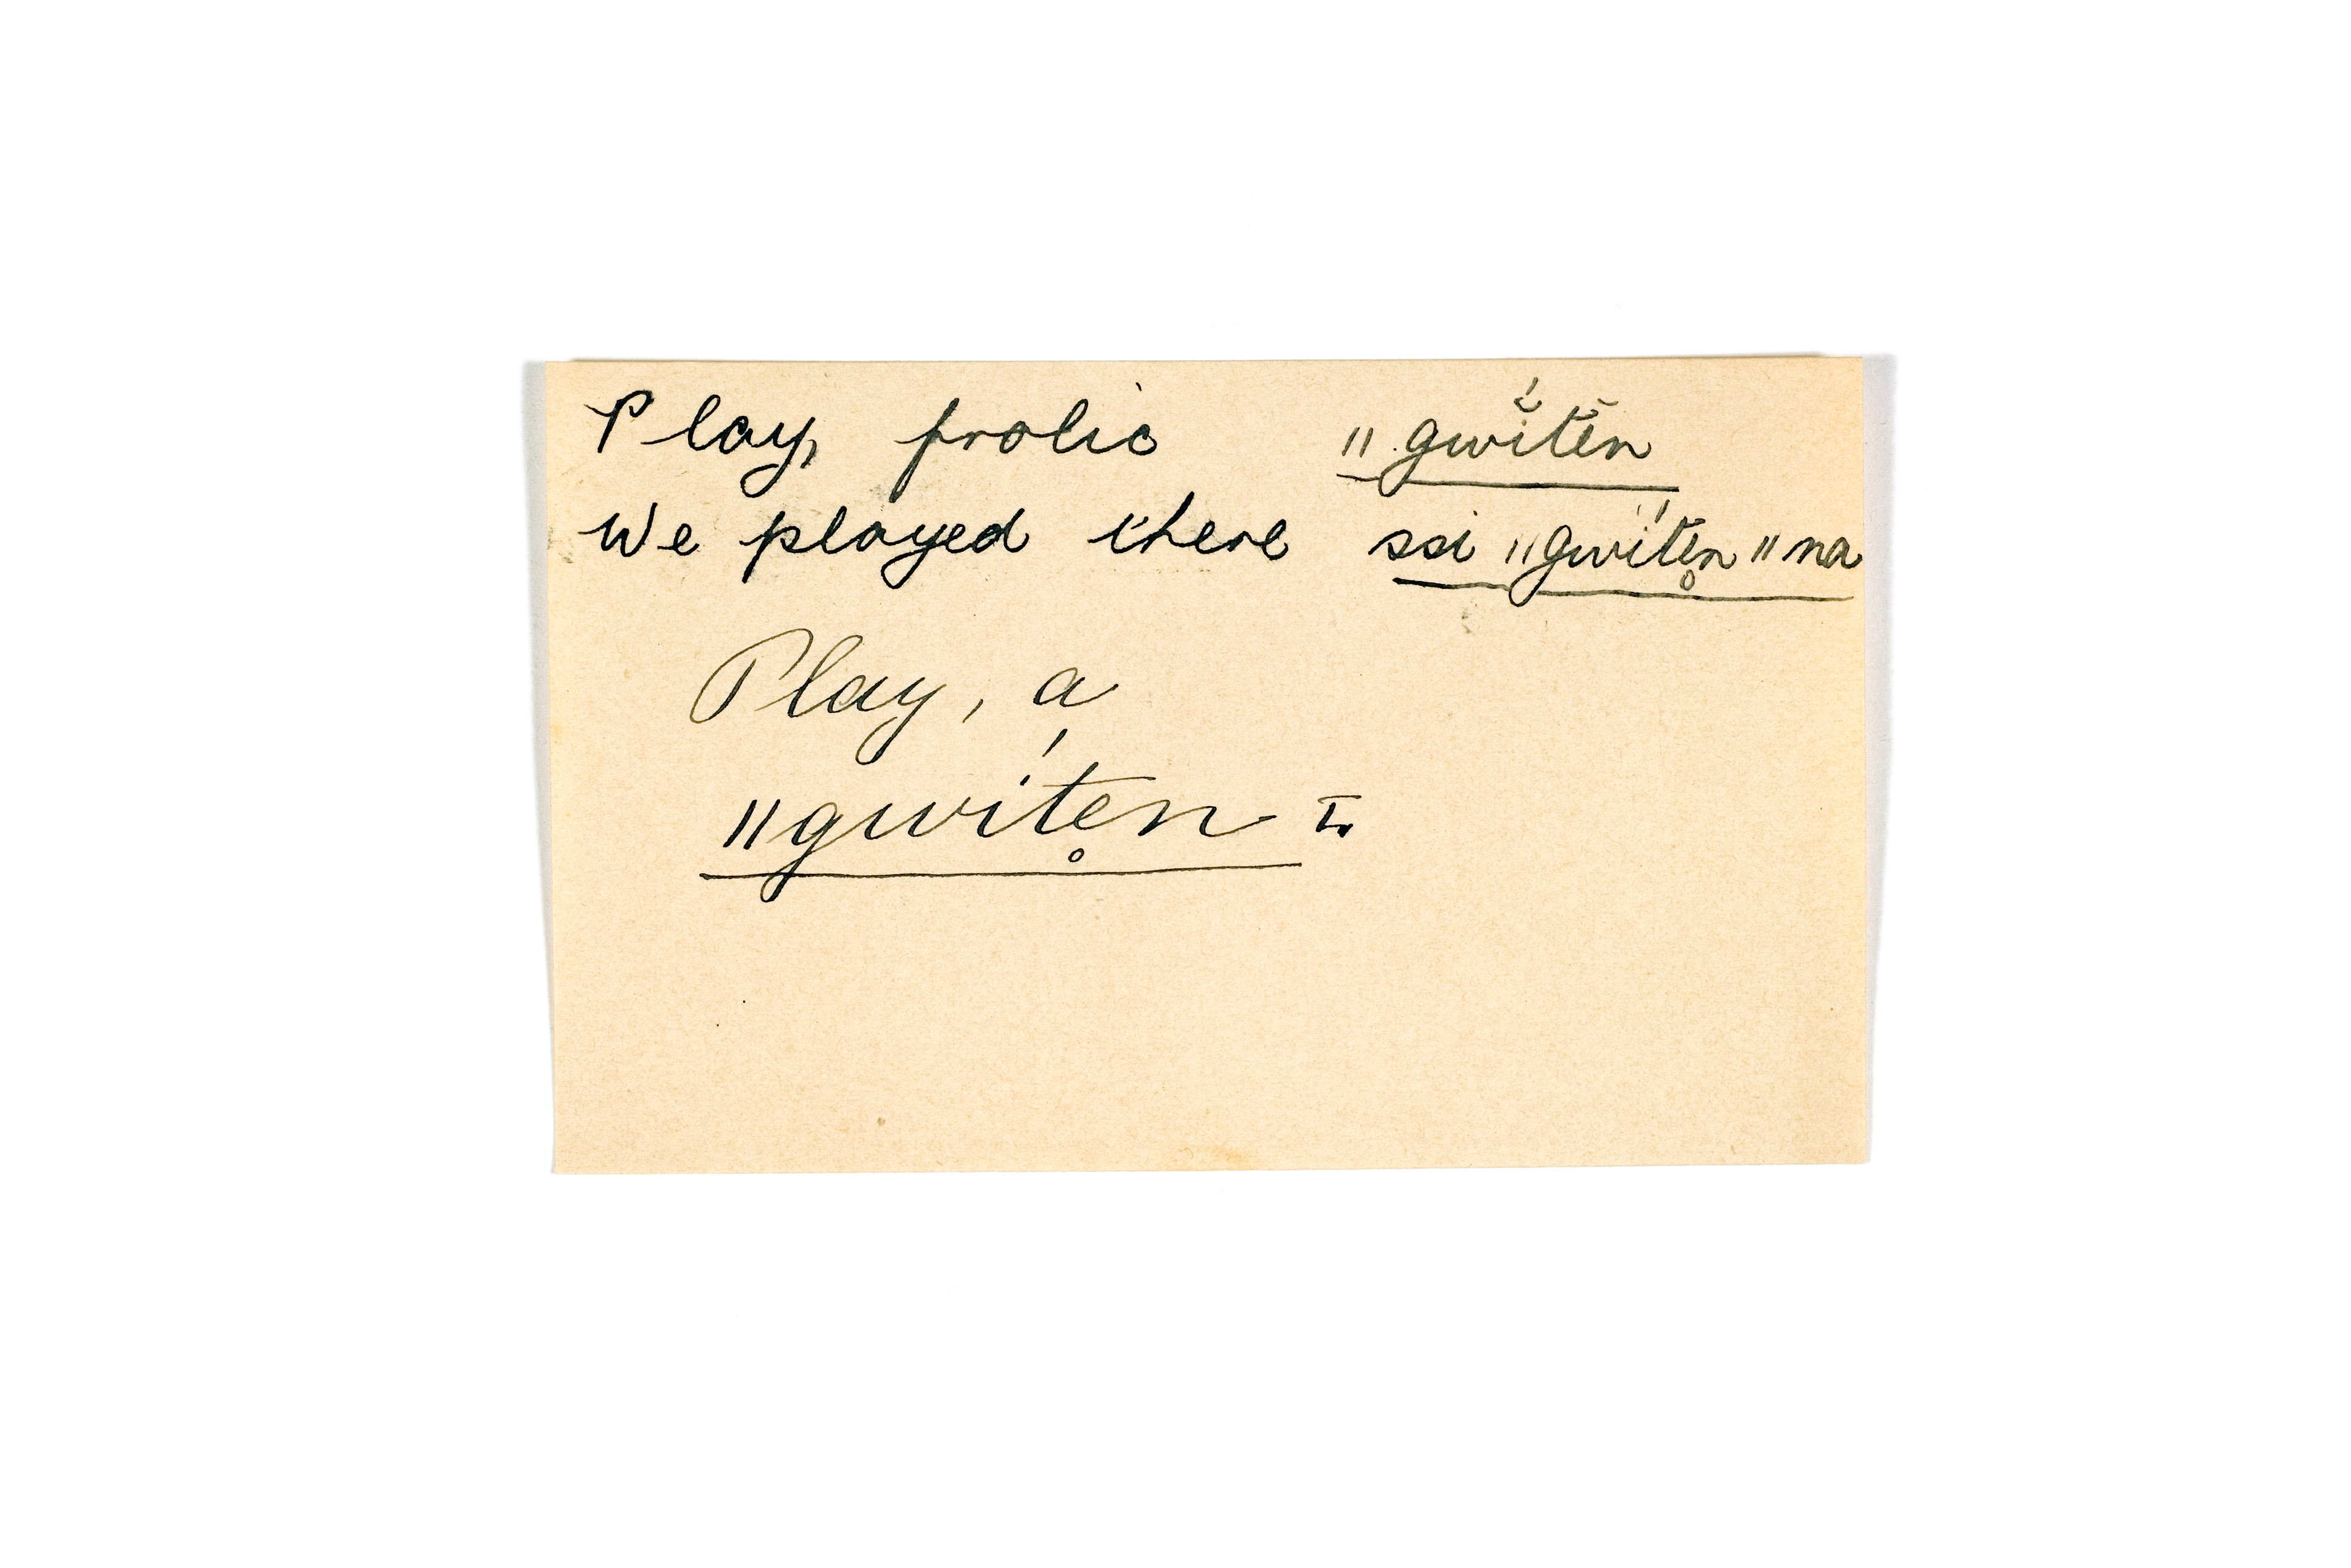 Play, frolic ǁgwı̆́tĕn
We played there ssi ǁgwíte̥n ǁna
Play, a
ǁgwíte̥n